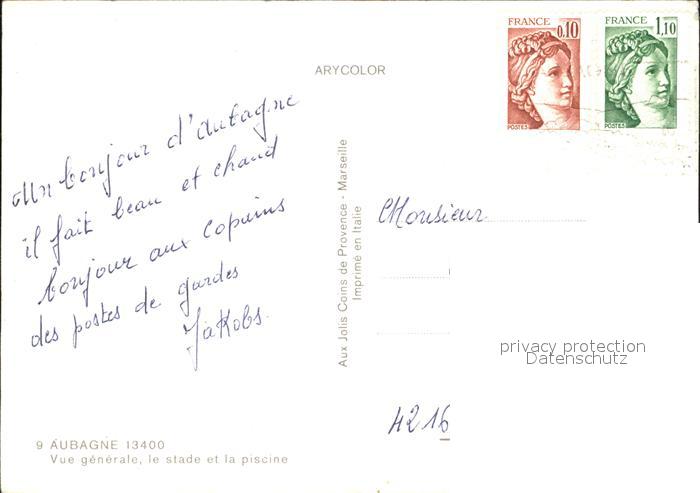 FRANCE 0,10
POSTES
FRANCE 1,10
POSTES
ARYCOLOR
Un bonjour d'aubagne
il fait beau et chaud
bonjour aux copains
des postes de gardes
Jakobs.
Aux Jolis Coins de Provence - Marseille
Imprimé en Italie
Monsieur
privacy protection
Datenschutz
4216
9 AUBAGNE 13400
Vue générale, le stade et la piscine